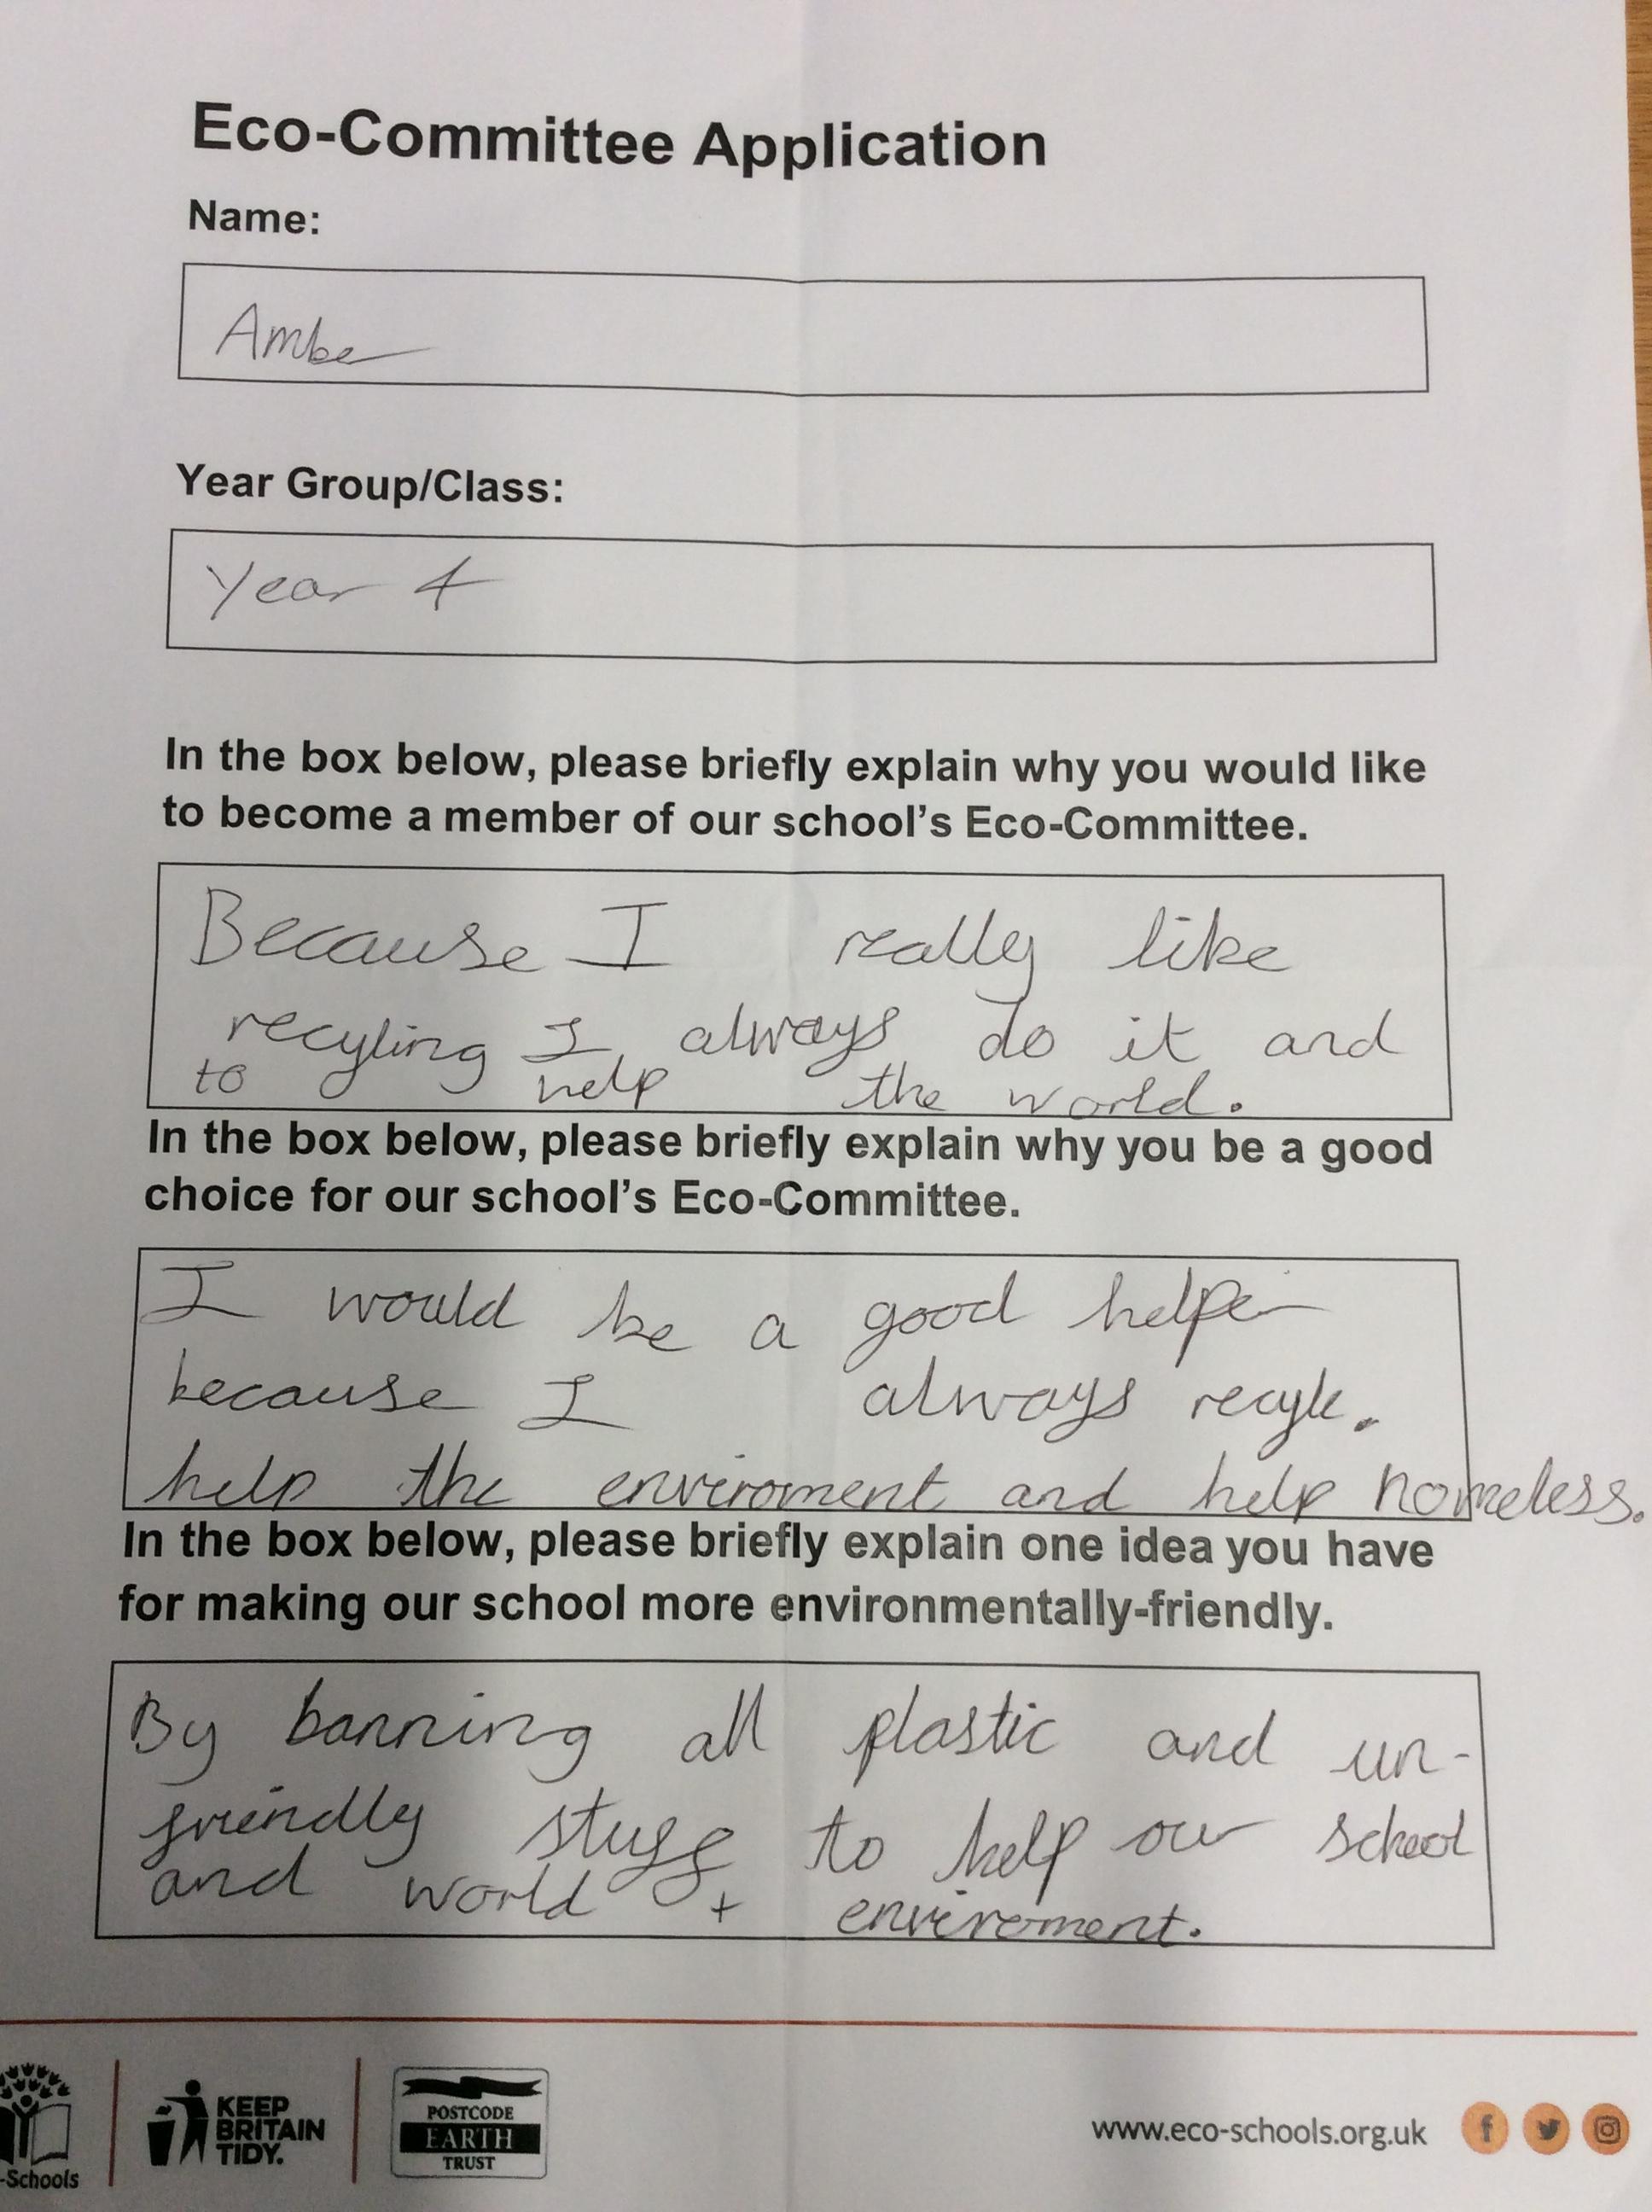 Eco-Committee Application
Name:
Amber
Year Group/Class:
Year 4
In the box below, please briefly explain why you would like
to become a member of our school's Eco-Committee.
Because I really like
recyling I always do it and
to help the world.
In the box below, please briefly explain why you be a good
choice for our school's Eco-Committee.
I would be a good helper
because I always recyle.
help the enviroment and help homeless.
In the box below, please briefly explain one idea you have
for making our school more environmentally-friendly.
By banning all plastic and un-
friendly stuff to help our school
and world + enviroment.
-Schools
KEEP
BRITAIN
TIDY.
POSTCODE
EARTH
TRUST
www.eco-schools.org.uk